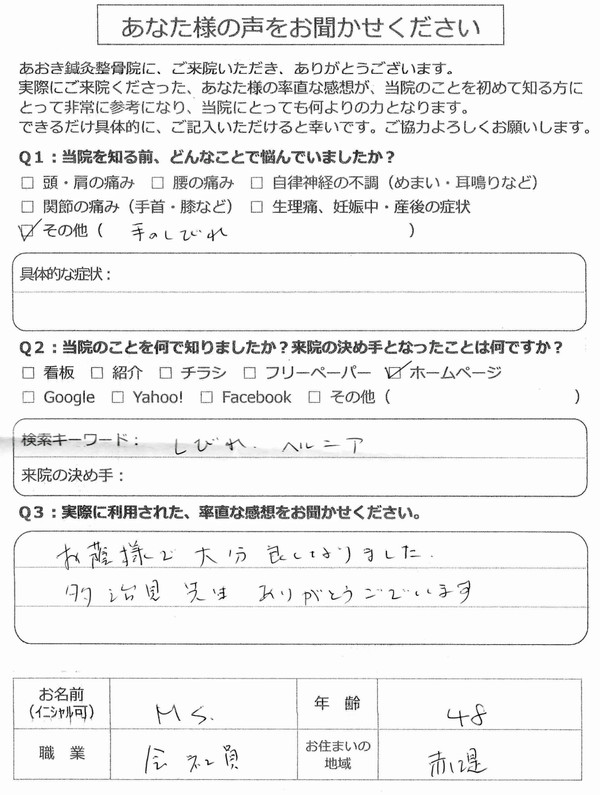 あなた様の声をお聞かせください
あおき鍼灸整骨院に、ご来院いただき、ありがとうございます。
実際にご来院くださった、あなた様の率直な感想が、当院のことを初めて知る方に
とって非常に参考になり、当院にとっても何よりの力となります。
できるだけ具体的に、ご記入いただけると幸いです。ご協力よろしくお願いします。
Q1：当院を知る前、どんなことで悩んでいましたか？
□ 頭・肩の痛み □ 腰の痛み □ 自律神経の不調（めまい・耳鳴りなど）
□ 関節の痛み（手首・膝など） □ 生理痛、妊娠中・産後の症状
☑ その他（ 手のしびれ ）
具体的な症状：
Q2：当院のことを何で知りましたか？来院の決め手となったことは何ですか？
□ 看板 □ 紹介 □ チラシ □ フリーペーパー ☑ ホームページ
□ Google □ Yahoo! □ Facebook □ その他（ ）
検索キーワード： しびれ. ヘルニア
来院の決め手：
Q3：実際に利用された、率直な感想をお聞かせください。
お蔭様で 大分 良くなりました.
多治見 先生 ありがとうございます
お名前 M S. 年 齢 48
（イニシャル可）
職 業 会社員 お住まいの
地域 赤堤